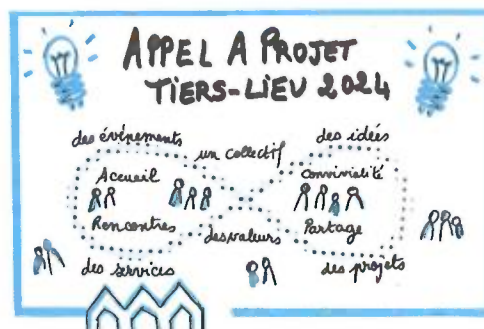 APPEL A PROJET
TIERS-LIEU 2024
des événements
un collectif
des idées
Accueil
convivialité
Rencontres
des valeurs
Partage
des services
des projets